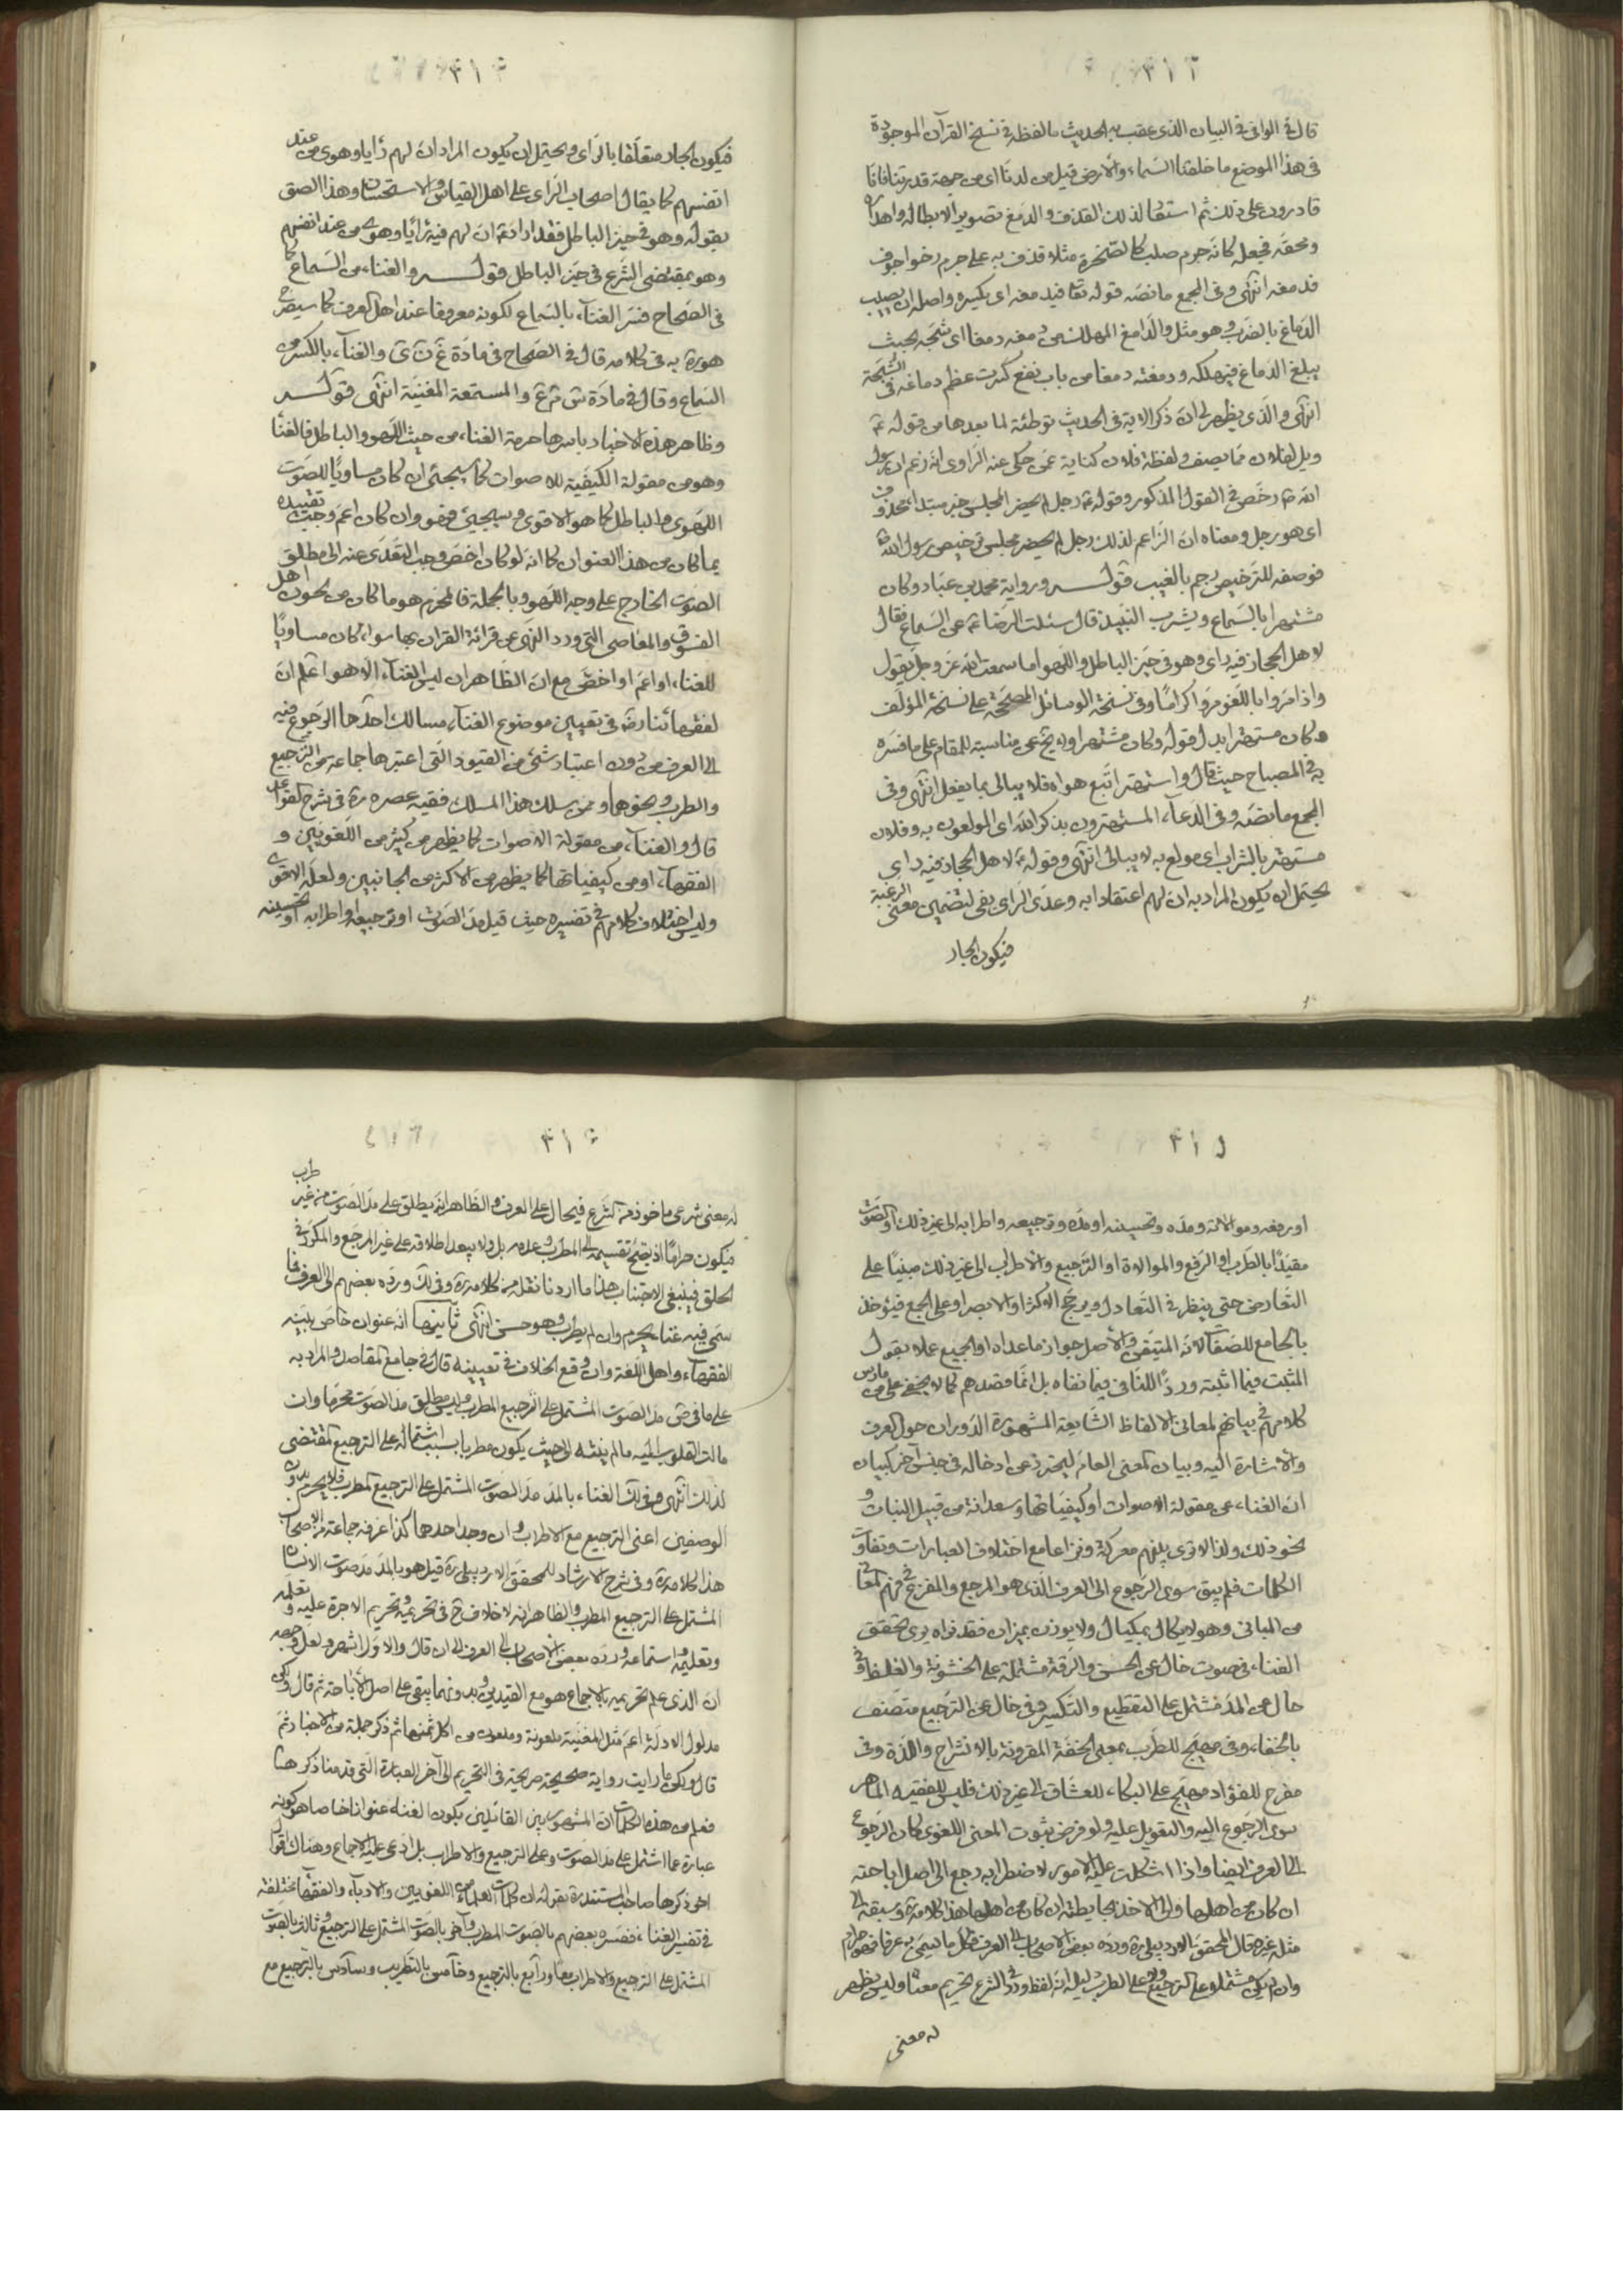 ٣١٣
قال في الوافي في البيان الذى عقب به الحديث ما لفظه في نسخ القرآن الموجودة
في هذا الموضع ما خلقنا السماء والأرض قيل من لدنا اى من جهة قدرتنا فانا
قادرون على ذلك ثم استعير لذلك القذف والدمغ تصوير الابطاله واهداره
ومحقه فجعل كانه جرم صلب كالصخرة مثلا قذف به على جرم رخو اجوف
فدمغه انتهى وفى المجمع ما نصه قوله تعا فيدمغه اى يكسره واصله ان يصيب
الدماغ بالضرب وهو مثل والدامغ المهلك من دمغه دمغا اى شجه بحيث
يبلغ الدماغ فيهلكه ودمغته دمغا من باب نفع كسرت عظم دماغه في الشجة
انتهى والذى يظهر لى ان ذكر الاية في الحديث توطئة لما بعدها من قوله ع
ويل لفلان مما يصف ولفظة فلان كناية عمن حكى عنه الراوى انه زعم ان رسول
الله ص رخص في القول المذكور وقوله ع رجل لم يحضر المجلس خبر مبتداء محذوف
اى هو رجل ومعناه ان الزاعم لذلك رجل لم يحضر مجلس ترخيص رسول الله ص
فوصفه للترخيص رجم بالغيب قوله ورواية محمد بن ابى عباد وكان
مشتهرا بالسماع ويشرب النبيذ قال سئلت الرضا ع عن السماع فقال
لاهل الحجاز فيه راى وهو في حيز الباطل واللهو اما سمعت الله عز وجل يقول
واذا مروا باللغو مروا كراما وفى نسخة الوسائل المصححة على نسخة المؤلف
وكان مستهترا بدل قوله وكان مشتهرا ولا يخفى مناسبته للمقام على ما فسره
به في المصباح حيث قال واستهتر اتبع هواه فلا يبالى بما يفعل انتهى وفى
المجمع ما نصه وفى الدعاء المستهترون بذكر الله اى المولعون به وفلان
مستهتر بالشراب اى مولع به لا يبالى انتهى وقوله ع لاهل الحجاز فيه راى
يحتمل ان يكون المراد به ان لهم اعتقادا به وعدى الراى بفى لتضمين معنى الرغبة
فيكون الجار
٣١٤
فيكون الجار متعلقا بالراى ويحتمل ان يكون المراد ان لهم رأيا وهوى من عند
انفسهم كما يقال اصحاب الراى على اهل القياس والاستحسان وهذا الصق
بقوله وهو في حيز الباطل فقد اراد ع ان لهم فيه رأيا وهوى من عند انفسهم
وهو بمقتضى الشرع في حيز الباطل قوله والغناء من السماع كما
في الصحاح فسر الغناء بالسماع لكونه معروفا عند اهل العرف كما سيصرح
هو ره به في كلامه قال في الصحاح في مادة غ ن ى والغناء بالكسر من
السماع وقال في مادة س م ع والمستمعة المغنية انتهى قوله
وظاهر هذه الاخبار باسرها حرمة الغناء من حيث اللهو والباطل فالغناء
وهو من مقولة الكيفية للاصوات كما سيجئ ان كان مساويا للصوت
اللهوى والباطل كما هو الاقوى وسيجئ فهو وان كان اعم وجب تقييده
بما كان من هذا العنوان كما انه لو كان اخص وجب التعدى عنه الى مطلق
الصوت الخارج على وجه اللهو وبالجملة فالمحرم هو ما كان من لحون اهل
الفسوق والمعاصى التى ورد النهى عن قرائة القران بها سواء كان مساويا
للغناء او اعم او اخص مع ان الظاهر ان ليس الغناء الا هو اعلم ان
لفقهائنا رض في تعيين موضوع الغناء مسالك احدها الرجوع فيه
الى العرف من دون اعتبار شئ من القيود التى اعتبرها جماعة من الترجيع
والطرب ونحوهما وممن سلك هذا المسلك فقيه عصره ره في شرح القواعد
قال والغناء من مقولة الاصوات كما يظهر من كثير من اللغويين و
الفقهاء او من كيفياتها كما يظهر من الاكثر من الجانبين ولعله الاقوى
وليس اختلاف كلامهم في تفسيره حيث قيل مد الصوت او ترجيعه او اطرابه او تحسينه
٣١٥
او رفعه وموالاته ومده وتحسينه او مده وترجيعه واطرابه الى غير ذلك او الصوت
مقيدا بالطرب او الرفع والموالاة او الترجيع والاطراب الى غير ذلك مبنيا على
التعارض حتى ينظر في التعادل ويرجح الاكثر او الابصر او على الجمع فيؤخذ
بالجامع للصفات لانه المتيقن والأصل جواز ما عداه او الجميع عملا بقول
المثبت فيما اثبته وردا للنافى فيما نفاه بل انما قصدهم كما لا يخفى على من مارس
كلامهم في بيانهم لمعانى الالفاظ الشايعة المشهورة الدوران حول العرف
والاشارة اليه وبيان المعنى العام ليحترز عن ادخاله في جنس آخر كبيان
ان الغناء من مقولة الاصوات او كيفياتها وسعدانة من قبيل النبات و
نحو ذلك ولذا لا ترى بينهم معركة ونزاعا مع اختلاف العبارات وتفاوت
الكلمات فلم يبق سوى الرجوع الى العرف الذى هو المرجع والمفزع في فهم المعانى
من المبانى وهو لا يكال بمكيال ولا يوزن بميزان فقد نراه يرى تحقق
الغناء في صوت خال عن الحسن والرقة مشتملة على الخشونة والغلظة وفى
خال عن المد مشتمل على التقطيع والتكسير وفى خال عن الترجيع متصف
بالخفاء وفى مهيج للطرب بمعنى الخفة المقرونة بالانشراح واللذة وفى
مفرح للفؤاد مهيج على البكاء للعشاق الى غير ذلك فليس للفقيه الماهر
سوى الرجوع اليه والتعويل عليه ولو فرض ثبوت المعنى اللغوى كان الرجوع
الى العرف ايضا واذا اشكلت عليه الامور لاضطرابه رجع الى اصل اباحته
ان كان من اهلها والى الاخذ بحايطته ان كان من اهلها هذا كلامه ره وسبقه الى
مثله غيره قال المحقق الاردبيلى ره ورده بعض الاصحاب الى العرف فكل ما يسمى به عرفا فهو حرام
وان لم يكن مشتملا على الترجيع ولا على الطرب دليله انه لفظ ورد في الشرع تحريم معناه وليس بظاهر
له معنى
٣١٦
له معنى شرعى ماخوذ من الشرع فيحال على العرف والظاهر انه يطلق على مد الصوت من غير طرب
فيكون حراما اذ يصح تقسيمه الى المطرب وعدمه بل ولا يبعد اطلاقه على غير المرجع والمكرر في
الحلق فينبغى الاجتناب هذا ما اردنا نقله من كلامه ره وفى لك ورده بعضهم الى العرف فما
سمى فيه غناء يحرم وان لم يطرب وهو حسن انتهى ثانيها انه عنوان خاص بينه
الفقهاء واهل اللغة وان وقع الخلاف في تعيينه قال في جامع المقاصد والمراد به
على ما في س مد الصوت المشتمل على الترجيع المطرب وليس مطلق مد الصوت محرما وان
مالت القلوب اليه ما لم ينته الى حيث يكون مطربا بسبب اشتماله على الترجيع المقتضى
لذلك انتهى وفى لك الغناء بالمد مد الصوت المشتمل على الترجيع المطرب فلا يحرم بدون
الوصفين اعنى الترجيع مع الاطراب وان وجد احدهما كذا عرفه جماعة من الاصحاب
هذا كلامه ره وفى شرح الارشاد للمحقق الاردبيلى ره قيل هو بالمد مد صوت الانسان
المشتمل على الترجيع المطرب والظاهر انه لا خلاف ح في تحريمه وتحريم الاجرة عليه وتعلمه
وتعليمه واستماعه ورده بعض الاصحاب الى العرف الى ان قال والاول اشهر ولعل وجهه
ان الذى علم تحريمه بالاجماع هو مع القيدين وبدونهما يبقى على اصل الاباحة ثم قال ولكن
مدلول الادلة اعم مثل المغنية ملعونة وملعون من اكل ثمنها ثم ذكر جملة من الاخبار ثم
قال ولكن ما رايت رواية صحيحة صريحة في التحريم الى آخر العبارة التى قدمنا ذكرها
فعلم من هذه الكلمات ان المشهور بين القائلين بكون الغناء عنوانا خاصا هو كونه
عبارة عما اشتمل على مد الصوت وعلى الترجيع والاطراب بل ادعى عليه الاجماع وهناك اقوال
اخر ذكرها صاحب المستند ره بقوله ان كلمات العلماء من اللغويين والادباء والفقهاء مختلفة
في تفسير الغناء ففسره بعضهم بالصوت المطرب وآخر بالصوت المشتمل على الترجيع وثالث بالصوت
المشتمل على الترجيع والاطراب معا ورابع بالترجيع وخامس بالتطريب وسادس بالترجيع مع